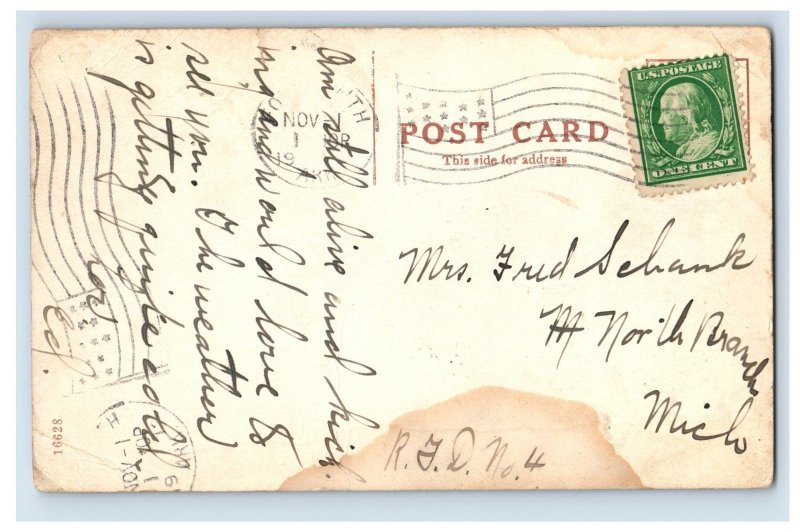 Am still alive and kick
ing and would love to
see you. The weather
is getting quite cold
Ed.
NOV 1
POST CARD
This side for address
U.S. POSTAGE
ONE CENT
Mrs. Fred Schank
North Branch
Mich
R.F.D. No. 4
16628
NOV-1